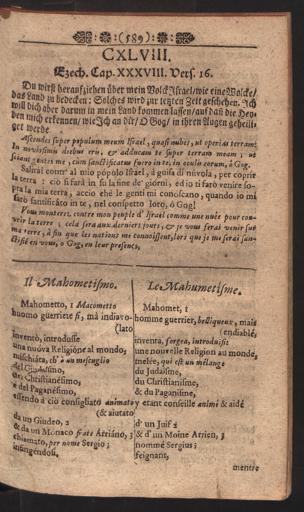 (589)
CXLVIII.
Ezech. Cap. XXXVIII. Vers. 16.
Du wirst heraufziehen über mein Volck Israel, wie eine Wolcke/
das Land zu bedecken: Solches wird zur letzten Zeit geschehen. Ich
will dich aber darum in mein Land kommen lassen/ auf daß die Hey-
den mich erkennen/ wie Ich an dir/ O Gog/ in ihren Augen geheili-
get werde.
Ascendes super populum meum Israel, quasi nubes, ut operias terram:
In novissimis diebus eris, & adducam te super terram meam, ut
sciant gentes me, cum sanctificatus fuero in te, in oculis eorum, ô Gog.
Salirai contr' al mio popolo Israel, à guisa di nuvola, per coprir
la terra: ciò sarà in su la fine de' giorni, ed io ti farò venire so-
pra la mia terra, acciò chè le genti mi conoscano, quando io mi
farò santificáto in te, nel conspetto loro, ô Gog!
Vous monterez contre mon peuple d'Israel comme une nuée pour cou-
vrir la terre; cela sera aux derniers jours, & je vous ferai venir sur
ma terre, à fin que les nations me connoissent, lors que je me ferai san-
ctifié en vous, o Gog, en leur presence,
Il Mahometismo.
Mahometto, 1 Macometto
huomo guerriere si, mà indiavo-
(lato
inventò, introdusse
una nuova Religióne al mondo,
mischiáta, ch' è un mescuglio
del Giudaísmo,
del Christianésimo,
e del Paganésimo,
essendo à ciò consigliáto animato
(& aiutato
da un Giudeo, 2
& da un Mònaco frate Arriáno, 3
chiamato, per nome Sergio;
infingéndosi,
Le Mahumetisme.
Mahomet, 1
homme guerrier, belliqueux, mais
(endiablé,
inventa, forgea, introduisit
une nouvelle Religion au monde,
melée, qui est un mélange
du Judaïsme,
du Christianisme,
& du Paganisme,
y etant conseillé animé & aidé
d' un Juif 2
& d' un Moine Arrien, 3
nommé Sergius;
feignant,
mentre